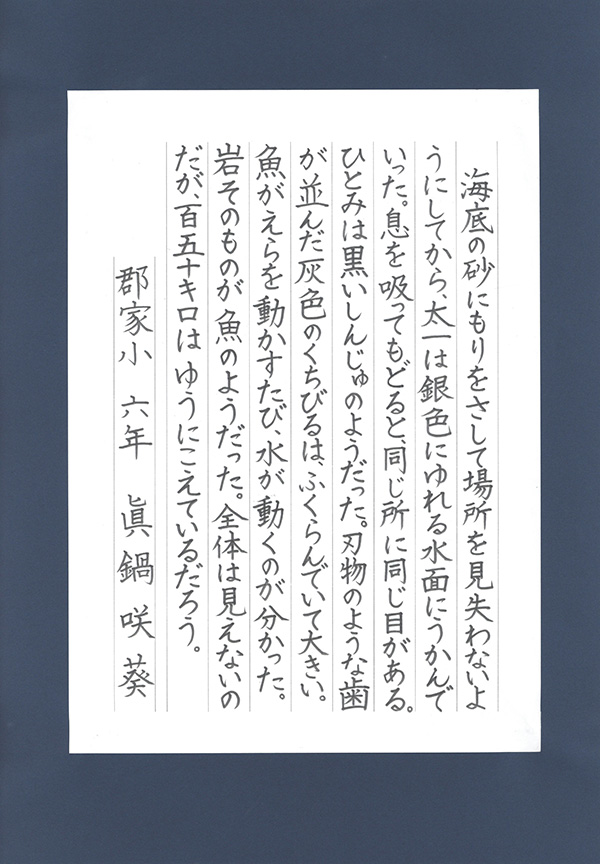 海底の砂にもりをさして場所を見失わないよ
うにしてから、太一は銀色にゆれる水面にうかんで
いった。息を吸ってもどると、同じ所に同じ目がある。
ひとみは黒いしんじゅのようだった。刃物のような歯
が並んだ灰色のくちびるは、ふくらんでいて大きい。
魚がえらを動かすたび、水が動くのが分かった。
岩そのものが魚のようだった。全体は見えないの
だが、百五十キロはゆうにこえているだろう。
郡家小 六年 眞鍋咲葵